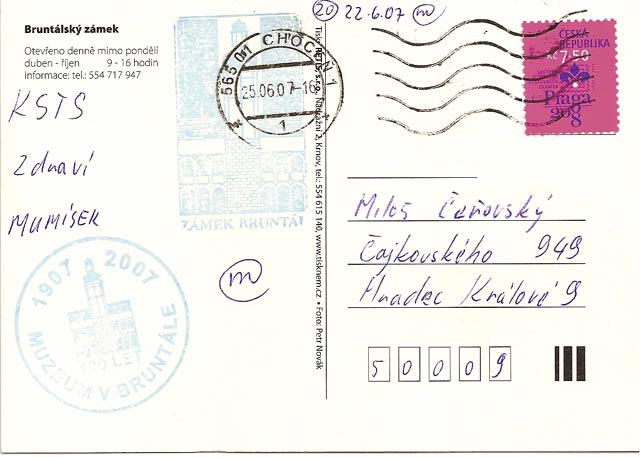 Bruntálský zámek
Otevřeno denně mimo pondělí
duben - říjen 9 - 16 hodin
informace: tel.: 554 717 947
KSTS
Zdraví
MUMÍSEK
1907 2007
100 LET
MUZEUM V BRUNTÁLE
ZÁMEK BRUNTÁL
565 01 CHOCEŇ 1
25.06.07-16
1
m
20 22.6.07 m
Tisk: RETIS s.r.o. Nádražní 2, Krnov, tel.: 554 615 140, www.tisknem.cz • Foto: Petr Novák
ČESKÁ
REPUBLIKA
Kč 7,50
Praga
2008
Miloš Čeňovský
Čajkovského 949
Hradec Králové 9
50009